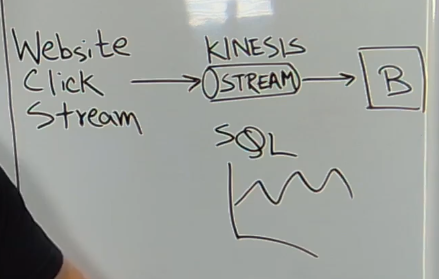 Website
Click
Stream
KINESIS
STREAM
B
SQL